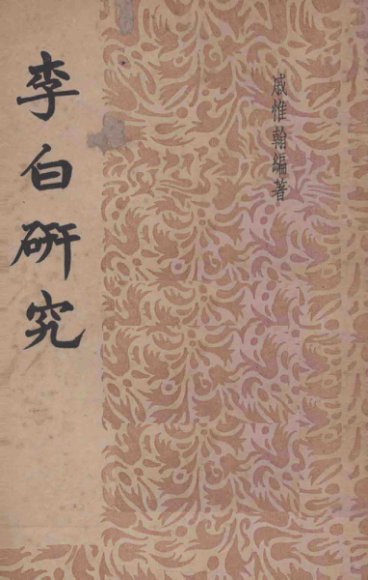 李白研究
戚惟翰編著